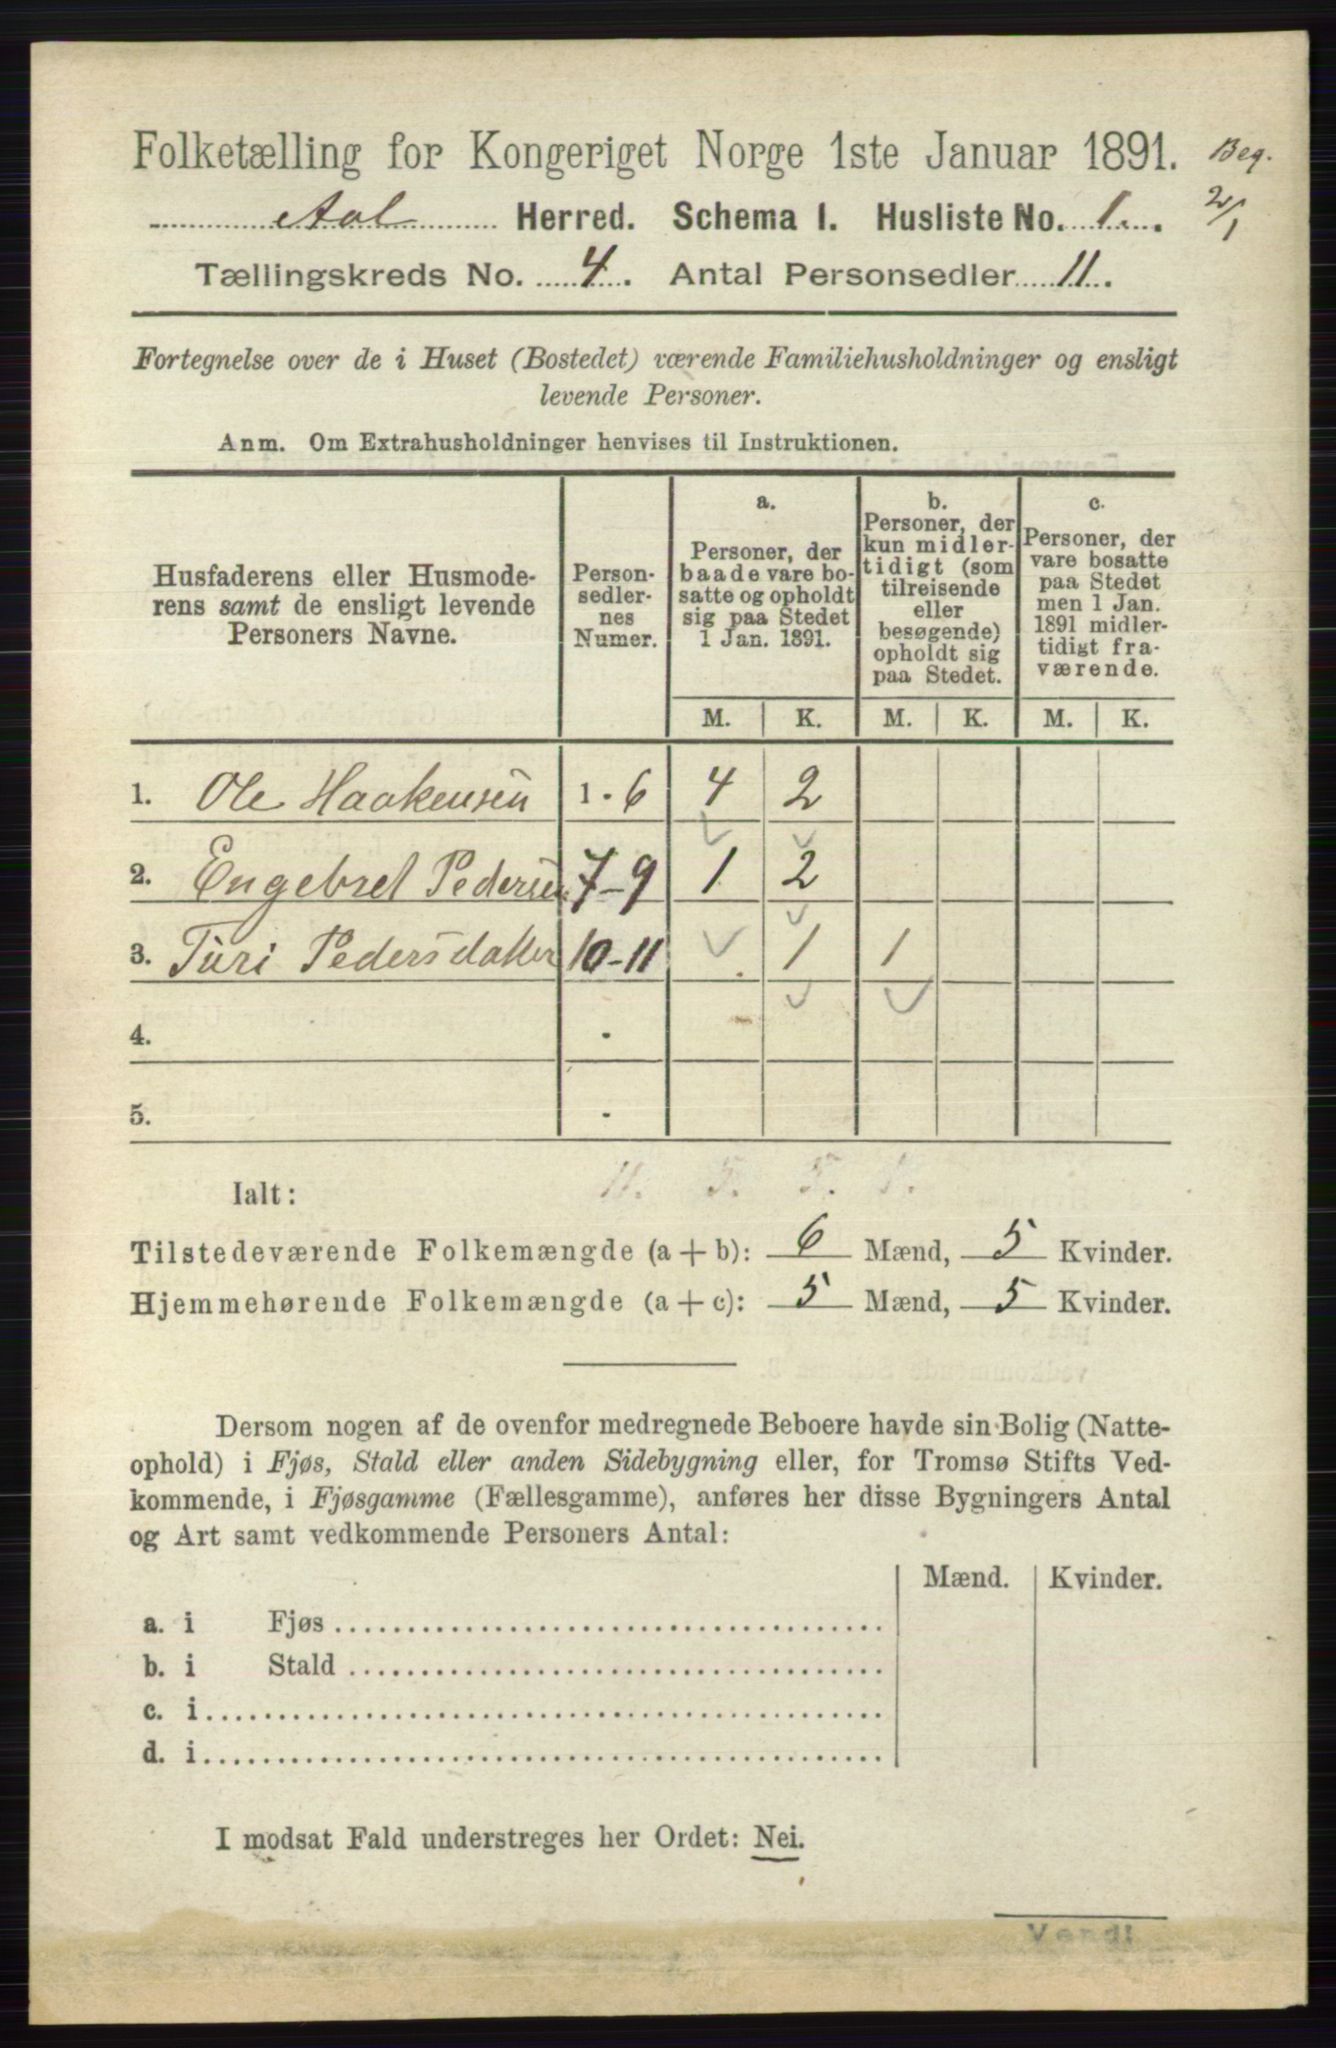 Folketælling for Kongeriget Norge 1ste Januar 1891. Beg.
Aal Herred. Schema I. Husliste No. 1. 2/1
Tællingskreds No. 4. Antal Personsedler 11.
Fortegnelse over de i Huset (Bostedet) værende Familiehusholdninger og ensligt
levende Personer.
Anm. Om Extrahusholdninger henvises til Instruktionen.
Husfaderens eller Husmode-
rens samt de ensligt levende
Personers Navne.
Person-
sedler-
nes
Numer.
a.
Personer, der
baade vare bo-
satte og opholdt
sig paa Stedet
1 Jan. 1891.
b.
Personer, der
kun midler-
tidigt (som
tilreisende
eller
besøgende)
opholdt sig
paa Stedet.
c.
Personer, der
vare bosatte
paa Stedet
men 1 Jan.
1891 midler-
tidigt fra-
værende.
M. K. M. K. M. K.
1. Ole Haakensen 1 - 6 4 2
2. Engebret Pedersen 7-9 1 2
3. Turi Pedersdatter 10-11 1 1
4. -
5. -
Ialt: 11. 5. 5. 1.
Tilstedeværende Folkemængde (a + b): 6 Mænd, 5 Kvinder.
Hjemmehørende Folkemængde (a + c): 5 Mænd, 5 Kvinder.
Dersom nogen af de ovenfor medregnede Beboere havde sin Bolig (Natte-
ophold) i Fjøs, Stald eller anden Sidebygning eller, for Tromsø Stifts Ved-
kommende, i Fjøsgamme (Fællesgamme), anføres her disse Bygningers Antal
og Art samt vedkommende Personers Antal:
Mænd. Kvinder.
a. i Fjøs
b. i Stald
c. i
d. i
I modsat Fald understreges her Ordet: Nei.
Vend!